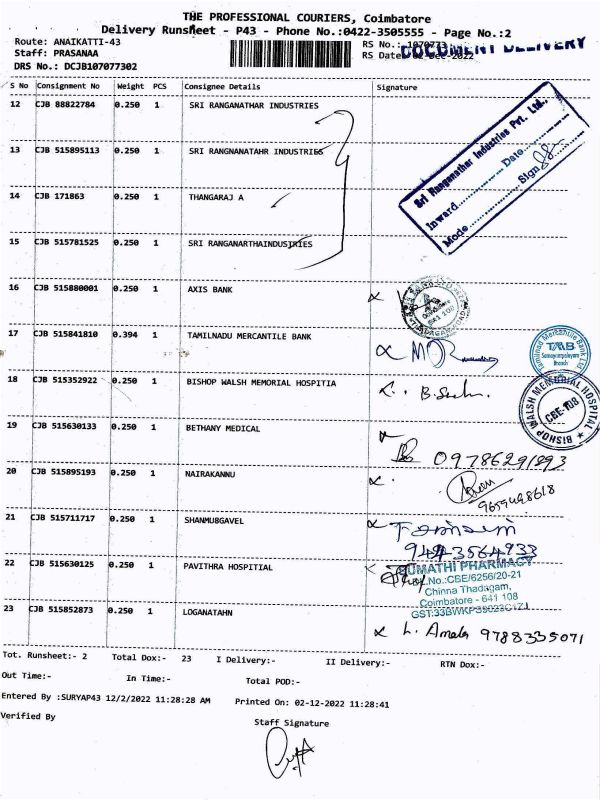 THE PROFESSIONAL COURIERS, Coimbatore
Delivery Runsheet - P43 - Phone No.:0422-3505555 - Page No.:2
Route: ANAIKATTI-43
Staff: PRASANAA
DRS No.: DCJB107077302
RS No.: 1070773
RS Date: 02-Dec-2022
DOCUMENT DELIVERY
S No Consignment No Weight PCS Consignee Details Signature
12 CJB 88822784 0.250 1 SRI RANGANATHAR INDUSTRIES
13 CJB 515895113 0.250 1 SRI RANGNANATAHR INDUSTRIES
14 CJB 171863 0.250 1 THANGARAJ A
15 CJB 515781525 0.250 1 SRI RANGANARTHAINDUSTRIES
Sri Ranganathar Industries Pvt. Ltd.,
Inward............Date............
Mode............Sign............
16 CJB 515880001 0.250 1 AXIS BANK
17 CJB 515841810 0.394 1 TAMILNADU MERCANTILE BANK
Tamilnad Mercantile Bank Ltd
TMB
Somayampalayam
Branch
18 CJB 515352922 0.250 1 BISHOP WALSH MEMORIAL HOSPITIA
BISHOP WALSH MEMORIAL HOSPITAL
CBE-108
19 CJB 515630133 0.250 1 BETHANY MEDICAL
09786291893
20 CJB 515895193 0.250 1 NAIRAKANNU
9659428618
21 CJB 515711717 0.250 1 SHANMUBGAVEL
9443564933
22 CJB 515630125 0.250 1 PAVITHRA HOSPITIAL
SUMATHI PHARMACY
No.:CBE/6256/20-21
Chinna Thadagam,
Coimbatore - 641 108
23 CJB 515852873 0.250 1 LOGANATAHN
L. Amala 9788335071
Tot. Runsheet:- 2 Total Dox:- 23 I Delivery:- II Delivery:- RTN Dox:-
Out Time:- In Time:- Total POD:-
Entered By :SURYAP43 12/2/2022 11:28:28 AM Printed On: 02-12-2022 11:28:41
Verified By Staff Signature